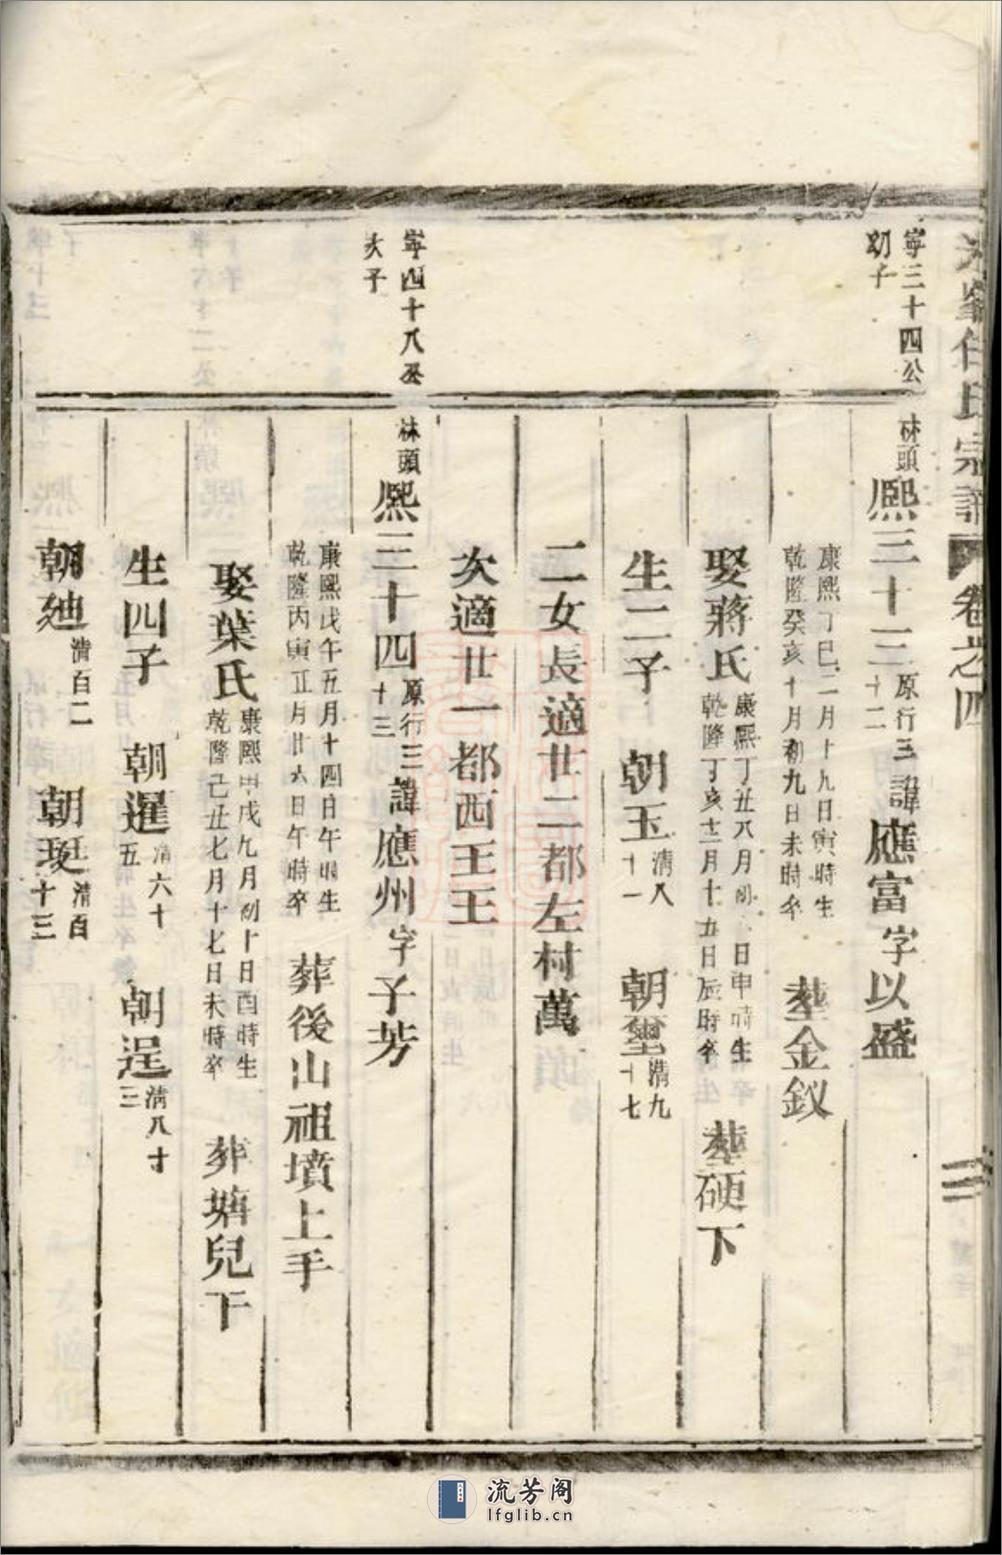 宗譜 卷之四
寧三十四公
幼子
林頭 熙三十三 原行三十二 諱應富字以盛
康熙丁巳二月十九日寅時生
乾隆癸亥十月初九日未時卒 塟金釵
娶蔣氏 康熙丁丑八月初 日申時生
乾隆丁亥十二月十五日辰時卒 塟硬下
生二子 朝玉 清八十一 朝璽 清九十七
二女長適廿二都左村萬
次適廿一都西王王
寧四十八公
次子
林頭 熙三十四 原行三十三 諱應州字子芳
康熙戊午五月十四日午時生
乾隆丙寅正月廿六日午時卒 葬後山祖墳上手
娶葉氏 康熙甲戌九月初十日酉時生
乾隆己丑七月十七日未時卒 葬塘兒下
生四子 朝暹 清六十五 朝逞 清八十三
朝 清百二 朝 清百十三
流芳阁
lfglib.cn